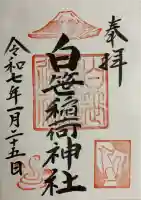 奉拝
白笹稲荷神社
令和七年一月二十五日